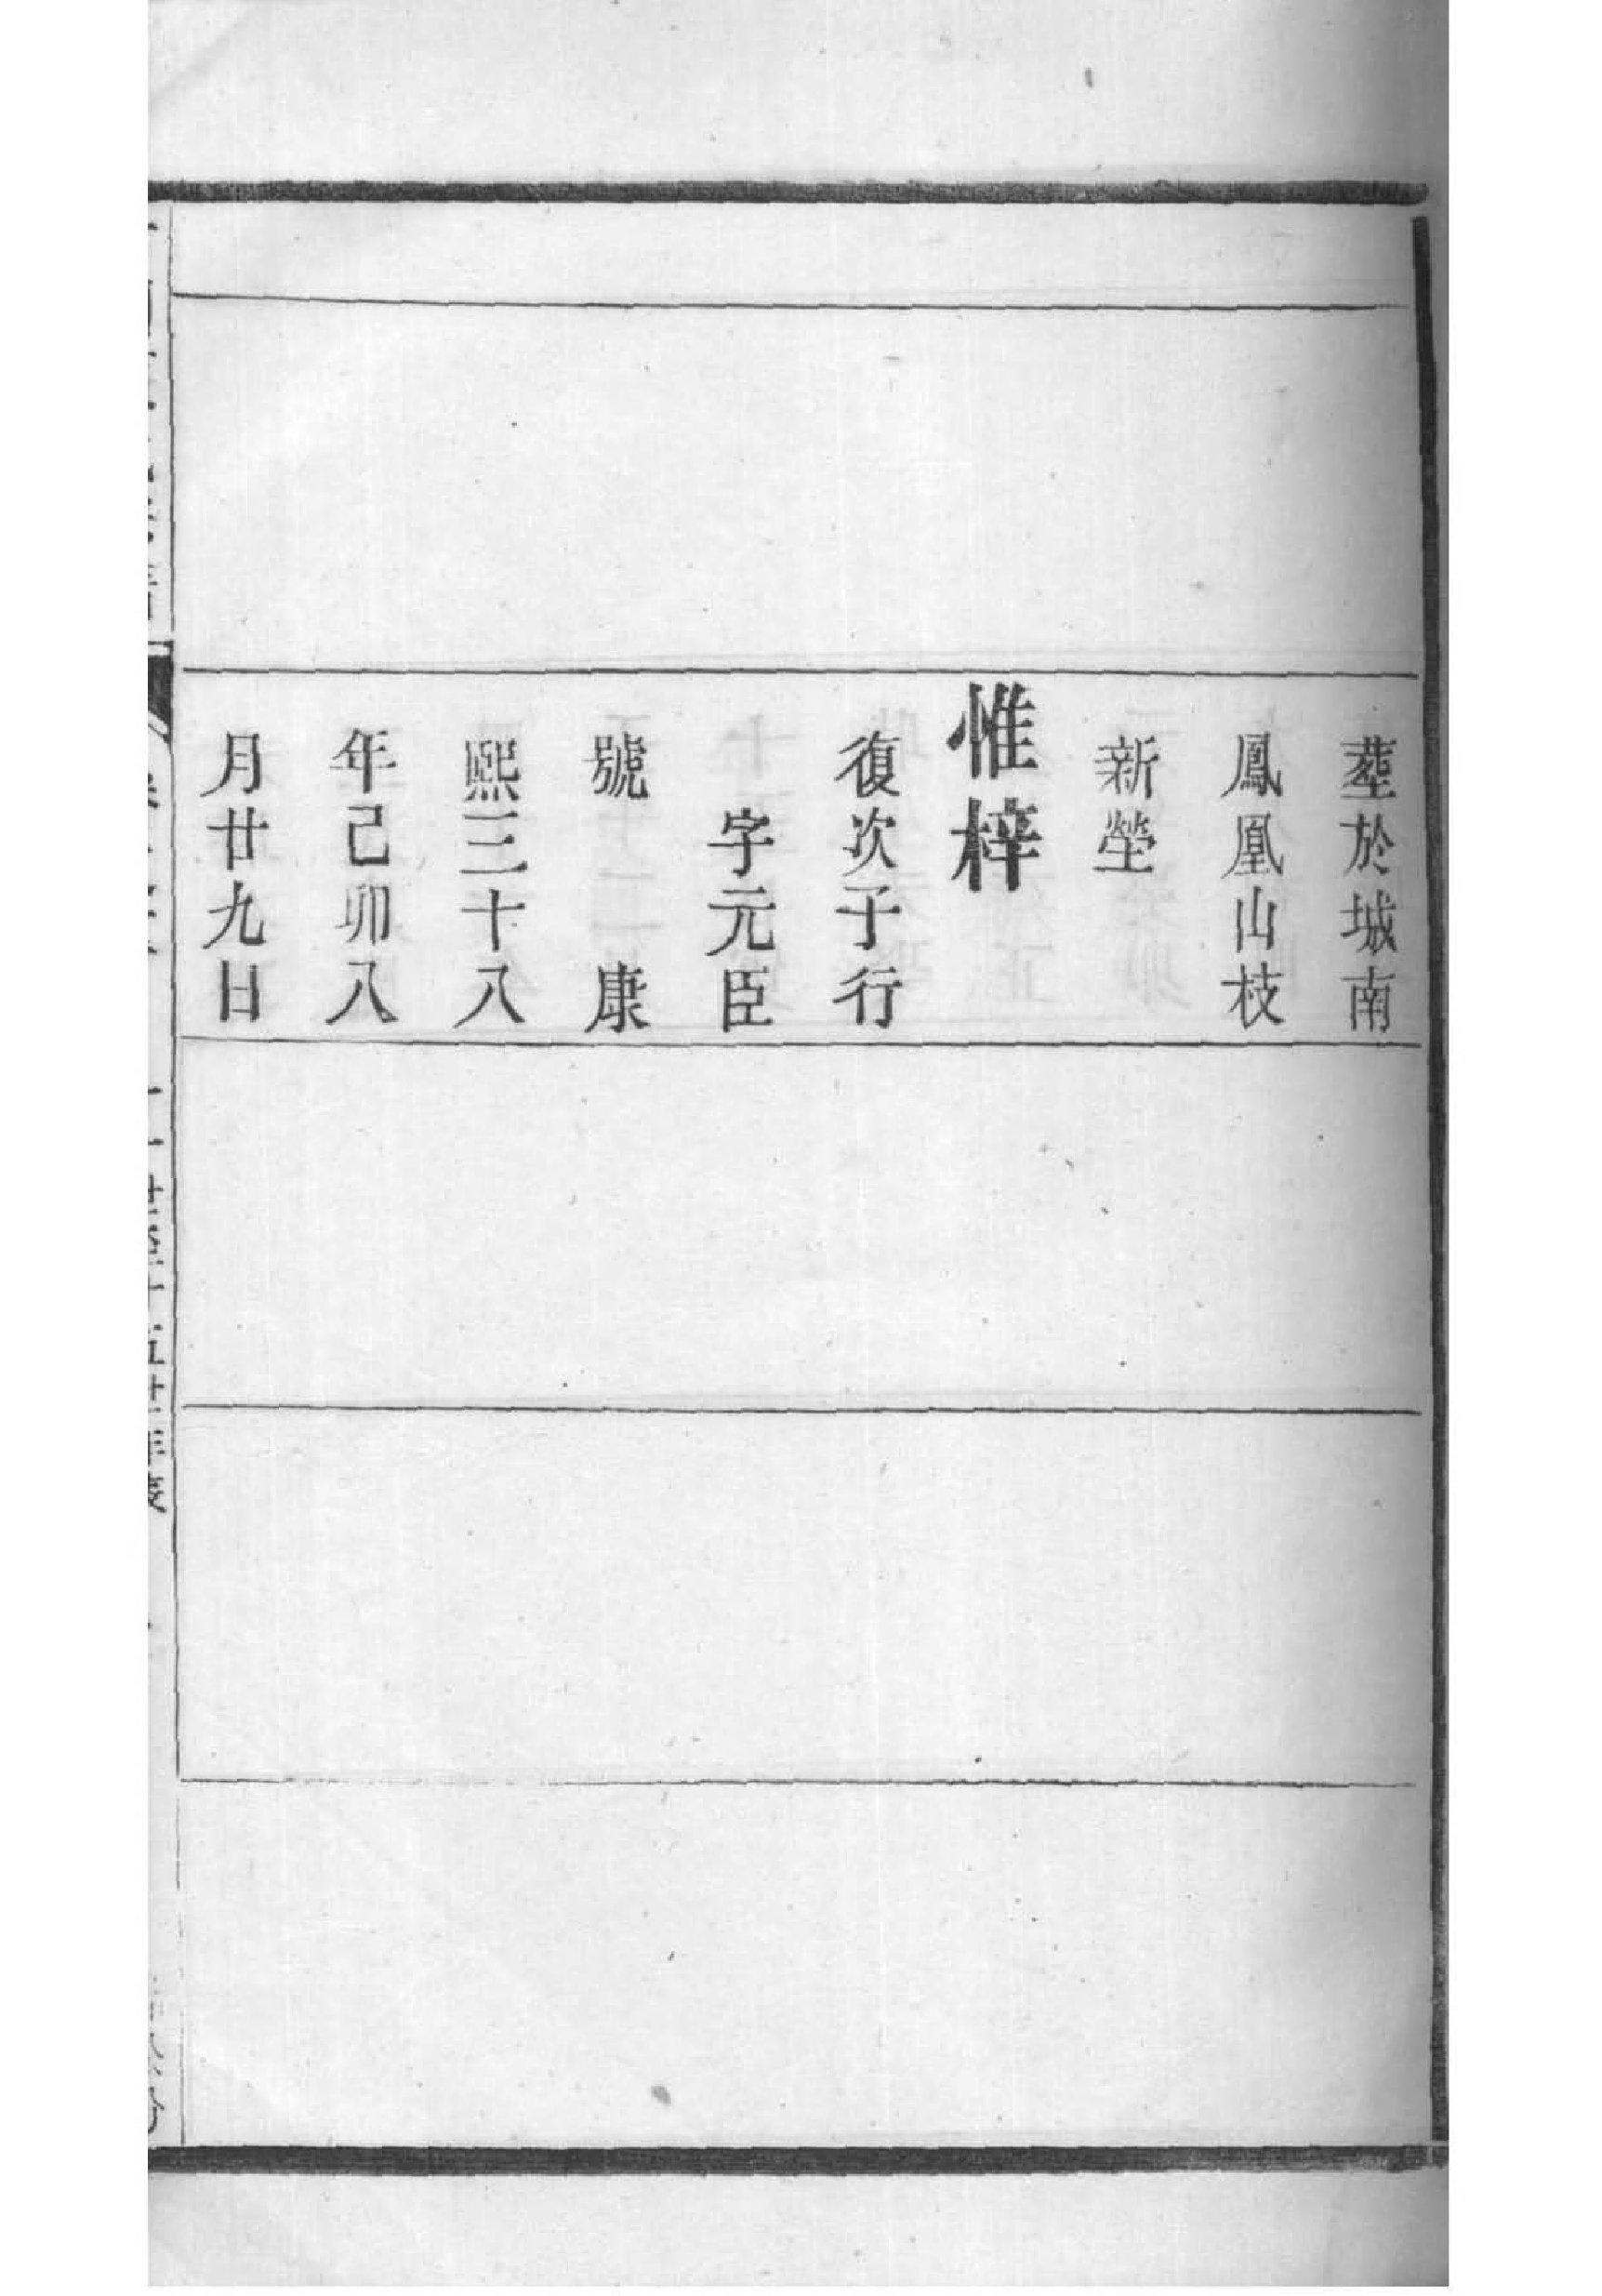 葬於城南
鳳凰山枝
新塋
惟梓
復次子行
字元臣
號　康
熙三十八
年己卯八
月廿九日